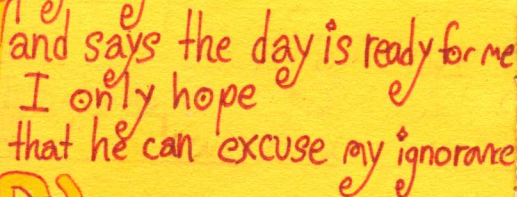 and says the day is ready for me
I only hope
that he can excuse my ignorance